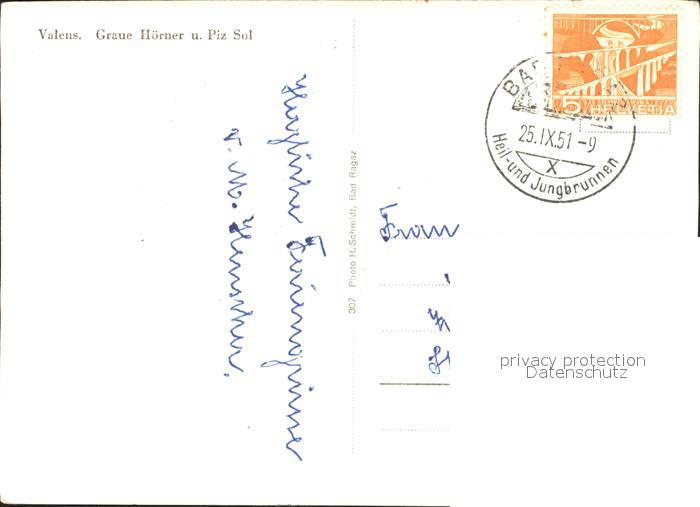 Valens. Graue Hörner u. Piz Sol
Herzliche Feriengrüsse
v. M.
307 Photo H. Schmidt, Bad Ragaz
5 HELVETIA
BAD
25.IX.51-9
X
Heil-und Jungbrunnen
Frau
privacy protection
Datenschutz